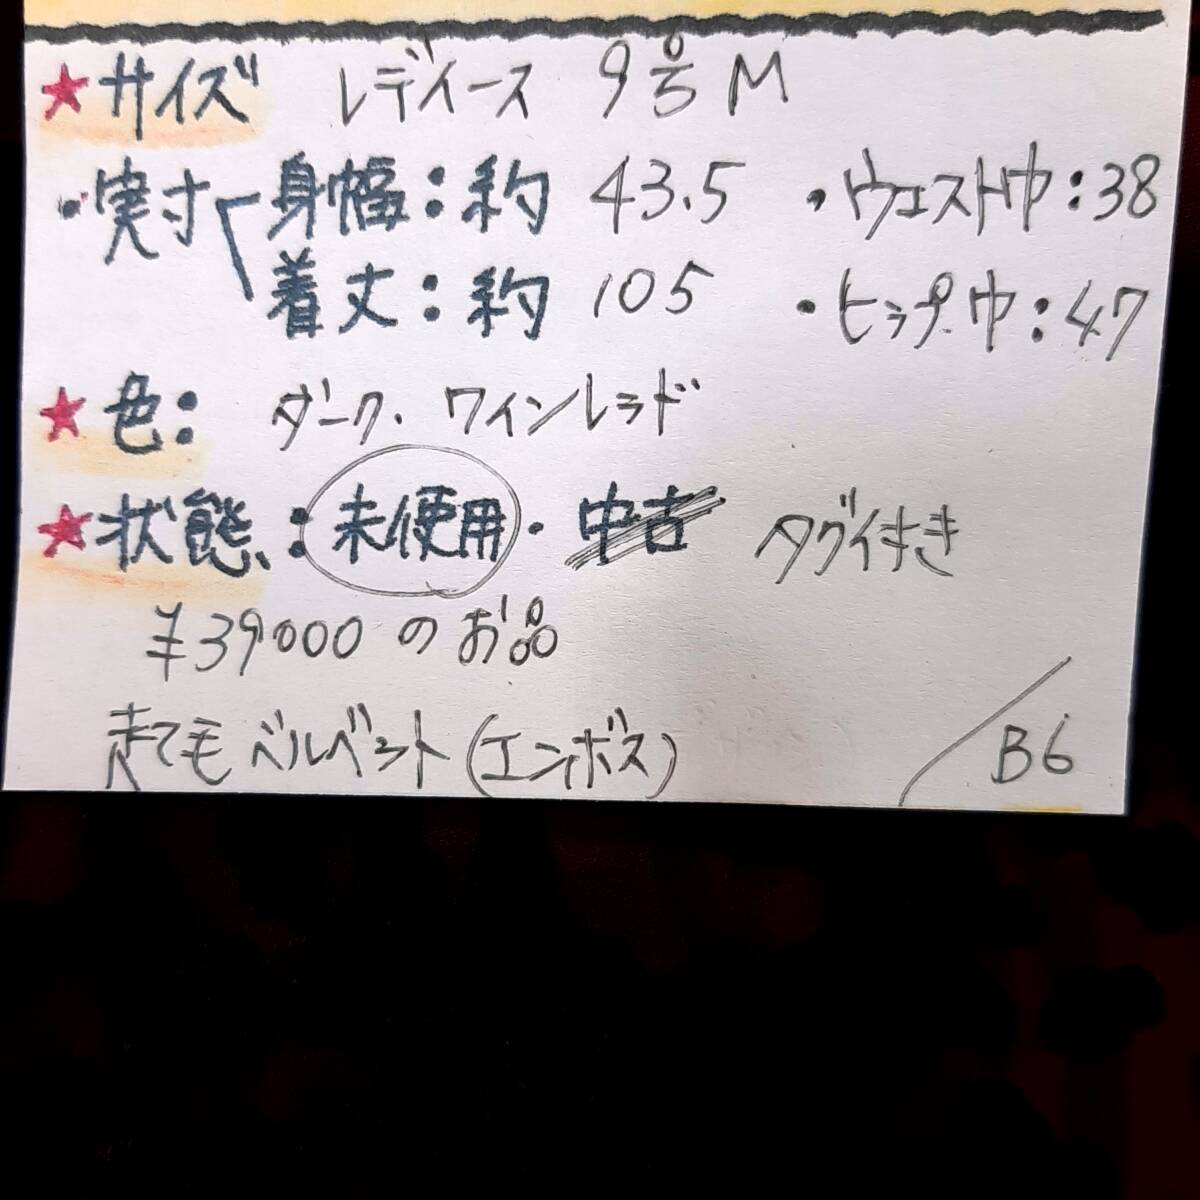 ★サイズ レディース 9号 M
・実寸 身幅：約 43.5 ・ウエスト巾：38
着丈：約 105 ・ヒップ巾：47
★色： ダーク．ワインレッド
★状態：未使用・中古 タグ付き
¥39000のお品
ベルベット(エンボス)
B6